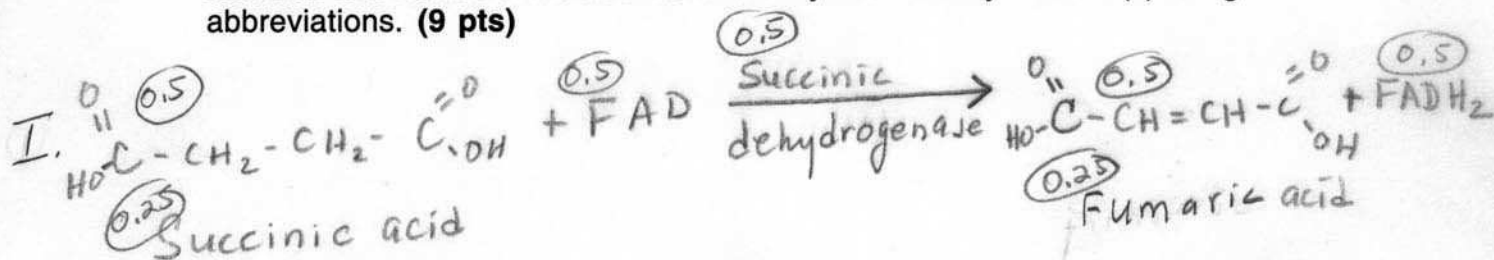 abbreviations. (9 pts)
I. HO-C(=O)-CH₂-CH₂-C(=O)-OH + FAD Succinic dehydrogenase → HO-C(=O)-CH=CH-C(=O)-OH + FADH₂
0.5 0.5 0.5 0.5 0.5
0.25 Succinic acid 0.25 Fumaric acid